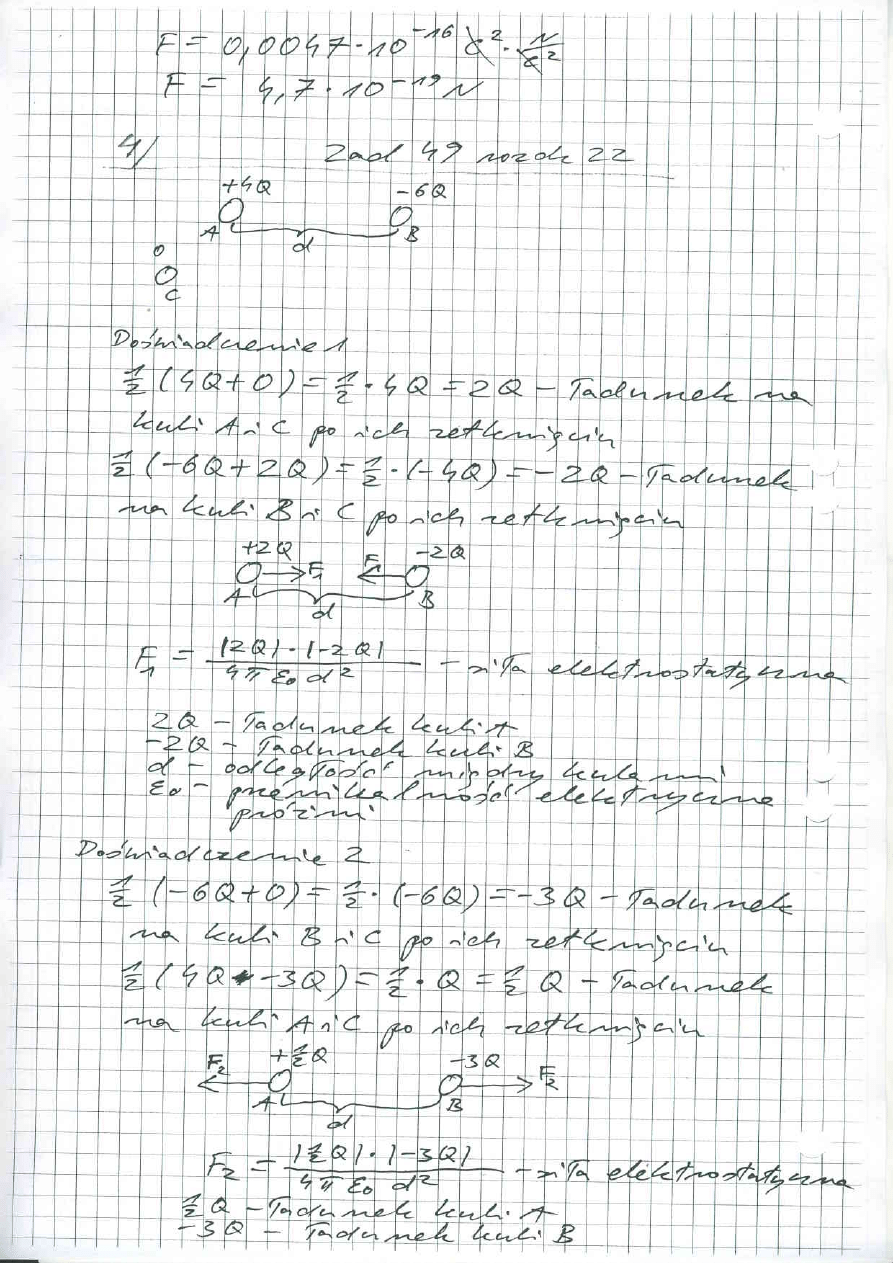 F = 0,0047·10⁻¹⁶ C²·N/C²
F = 4,7·10⁻¹⁹ N
4/ Zad 49 rozdz 22
+4Q -6Q
A d B
0
C
Doświadczenie 1
1/2 (4Q+0) = 1/2 · 4Q = 2Q - ładunek na
kuli A i C po ich zetknięciu
1/2 (-6Q+2Q) = 1/2 · (-4Q) = -2Q - ładunek
na kuli B i C po ich zetknięciu
+2Q F₁ F₁ -2Q
A d B
F₁ = |2Q|·|-2Q| / 4πε₀d² - siła elektrostatyczna
2Q - ładunek kuli A
-2Q - ładunek kuli B
d - odległość między kulami
ε₀ - przenikalność elektryczna
próżni
Doświadczenie 2
1/2 (-6Q+0) = 1/2 · (-6Q) = -3Q - ładunek
na kuli B i C po ich zetknięciu
1/2 (4Q -3Q) = 1/2 · Q = 1/2 Q - ładunek
na kuli A i C po ich zetknięciu
F₂ +1/2Q -3Q F₂
A d B
F₂ = |1/2Q|·|-3Q| / 4πε₀d² - siła elektrostatyczna
1/2 Q - ładunek kuli A
-3Q - ładunek kuli B